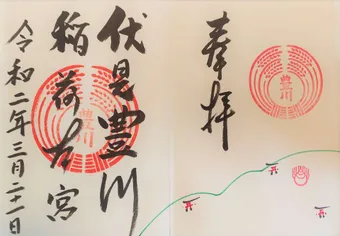 奉拝
豊川
伏見豊川
稲荷本宮
豊川
令和二年三月二十一日